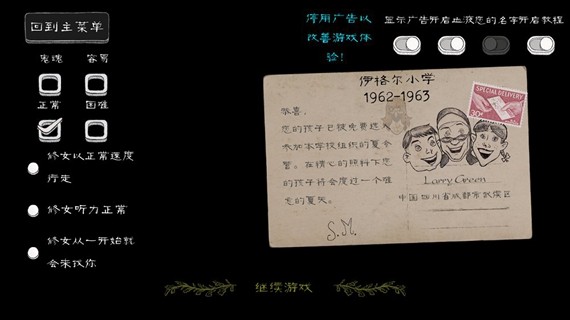 回到主菜单
鬼魂
容易
正常
困难
修女以正常速度
行走
修女听力正常
修女从一开始就
会来找你
停用广告以
改善游戏体
验!
显示广告开启血液您的名字开启教程
伊格尔小学
1962-1963
恭喜,
您的孩子已被免费选入
参加本学校组织的夏令
营。在精心的照料下您
的孩子将会度过一个难
忘的夏天。
S.M.
SPECIAL DELIVERY
30¢
Larry Green
中国四川省成都市武侯区
继续游戏